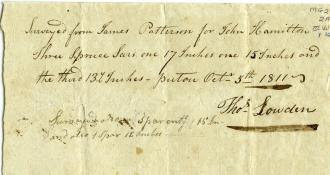 Surveyed from James Patterson for John Hamilton
Three Spruce Spars one 17 Inches one 15 Inches and
the third 13½ Inches - Pictou Octr 5th 1811
Thos Lowden
Spar 15 In
and also 1 Spar 12 Inches
MG3